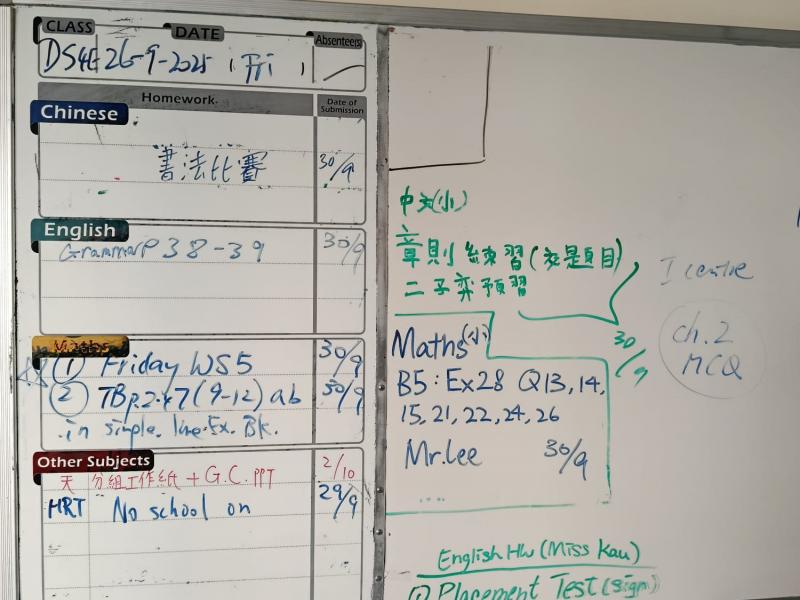 CLASS DATE Absentees
26-9-2025 (Fri)
Homework. Date of Submission
Chinese
書法比賽 30/9
English
Grammar P 38-39 30/9
Maths
① Friday WS5 30/9
② TBp2.47 (9-12) ab 30/9
in simple line Ex. BK.
Other Subjects
分組工作紙 + G.C. PPT 2/10
HRT No school on 29/9
中文(小)
章則練習(交題目)
二子弈預習
30/9
Maths(小)
B5: Ex28 Q13, 14,
15, 21, 22, 24, 26
Mr. Lee 30/9
ch. 2
MCQ
English HW (Miss Kau)
① Placement Test (sign)